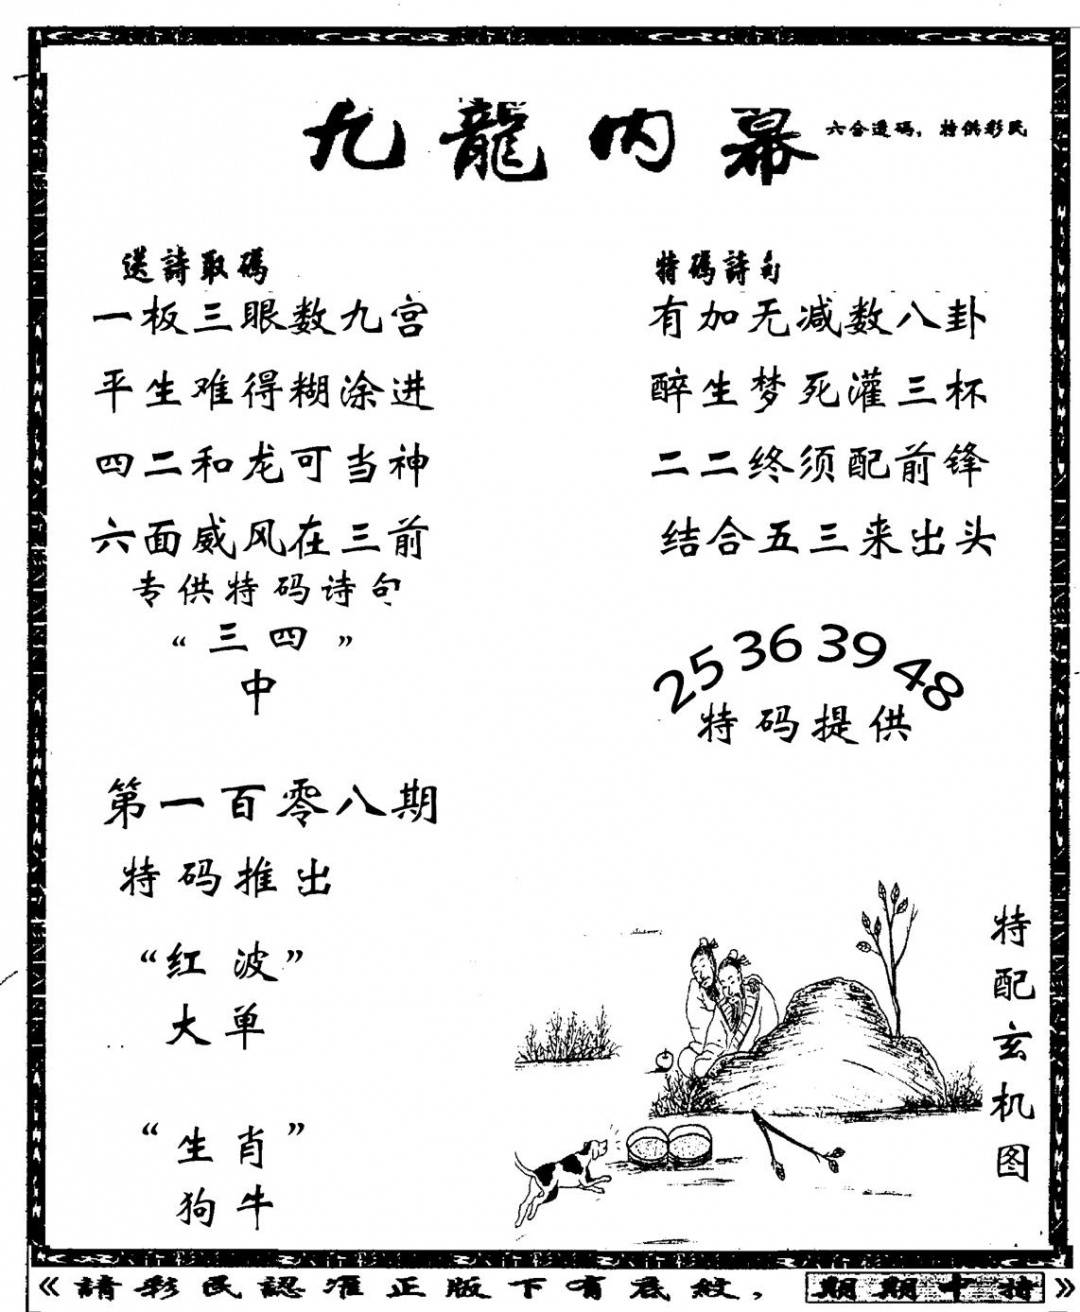 九龍内幕
六合透碼，特供彩民
送詩取碼
一板三眼数九宫
平生难得糊涂进
四二和龙可当神
六面威风在三前
专供特码诗句
“三四”
中
特碼詩句
有加无减数八卦
醉生梦死灌三杯
二二终须配前锋
结合五三来出头
25 36 39 48
特码提供
第一百零八期
特码推出
“红波”
大单
“生肖”
狗牛
特配玄机图
《請彩民認准正版下有底紋，期期中特》